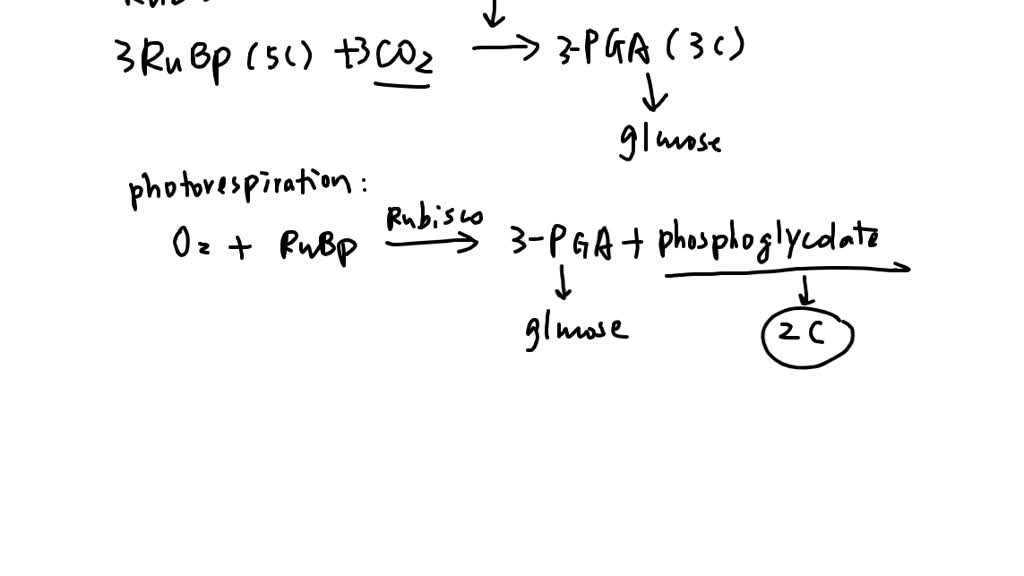 3RuBp (5C) + 3CO2 → 3-PGA (3C)
↓
glucose
photorespiration:
O2 + RuBp Rubisco → 3-PGA + phosphoglycolate
↓ ↓
glucose 2C